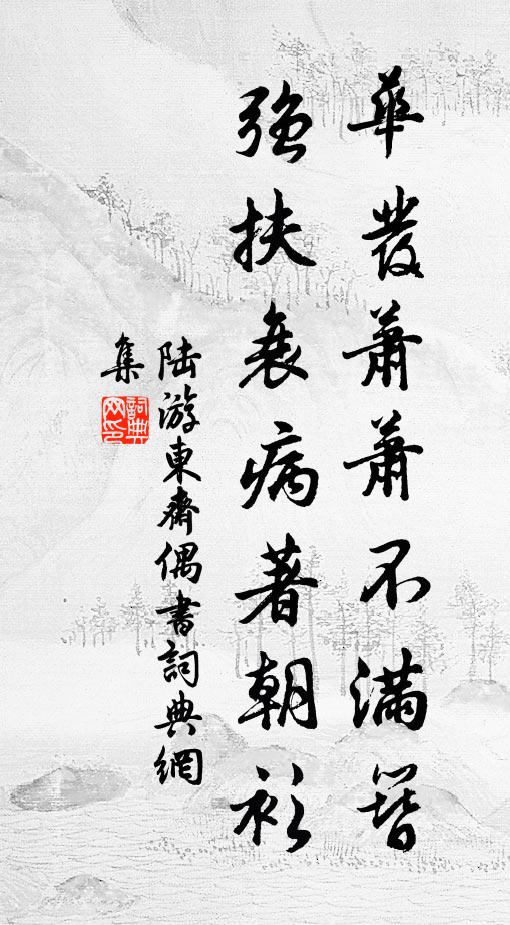 華發蕭蕭不滿簪
強扶衰病著朝衫
陸游東齋偶書詞典網
集
詞典
网印